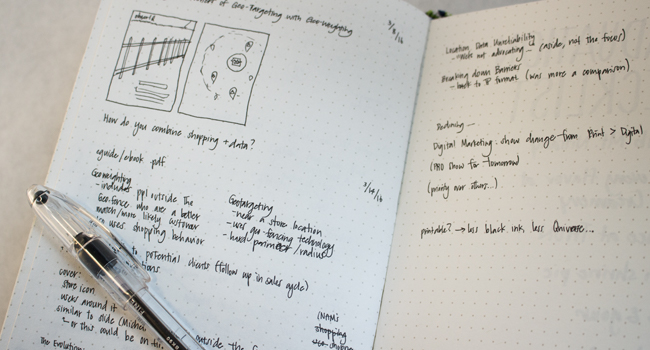 of Geo-Targeting with Geo-weighting
How do you combine shopping + data?
eguide/ebook pdf
3/14/16
Geoweighting
- includes ppl outside the
Geo-fence who are a better
match/more likely customer
uses shopping behavior
Geotargeting
- near a store location
- uses geo-fencing technology
- hard perimeter/radius
to potential clients (follow up in sales cycle)
cover:
store icon
users around it
similar to slide (Michael
or this could be on
outside the
(NAMs
shopping
The Evolution
Location Data Unreliability
advocating (aside, not the focus)
Breaking down Barriers
- back to TP format (was more a comparison)
Digital Marketing: show change from Print > Digital
(PRO show for tomorrow)
(priority over others...)
printable? → less black ink, less Universe...